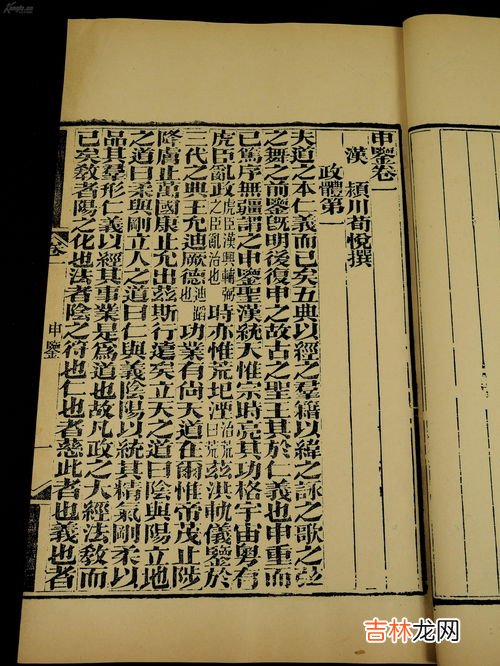 申鑒卷一
漢 潁川荀悅撰
政體第一
夫道之本仁義而已矣五典以經之羣籍以緯之詠之歌之弦
之舞之前鑒旣明後復申之故古之聖王其於仁義也申重而
已篤序無疆謂之申鑒聖漢統天惟宗時亮其功格宇宙粤有
虎臣亂政虎臣漢興輔弼之臣亂治也時亦惟荒圯湮治荒曰荒茲洪軌儀鑒於
三代之典王允迪厥德迪蹈也功業有尚天道在爾惟帝茂止陟
降膚止萬國康止允出茲斯行遠矣立天之道曰陰與陽立地
之道曰柔與剛立人之道曰仁與義陰陽以統其精氣剛柔以
品其羣形仁義以經其事業是爲道也故凡政之大經法敎而
已矣敎者陽之化也法者陰之符也仁也者慈此者也義也者
卷一
申鑒
一
吉林龙网